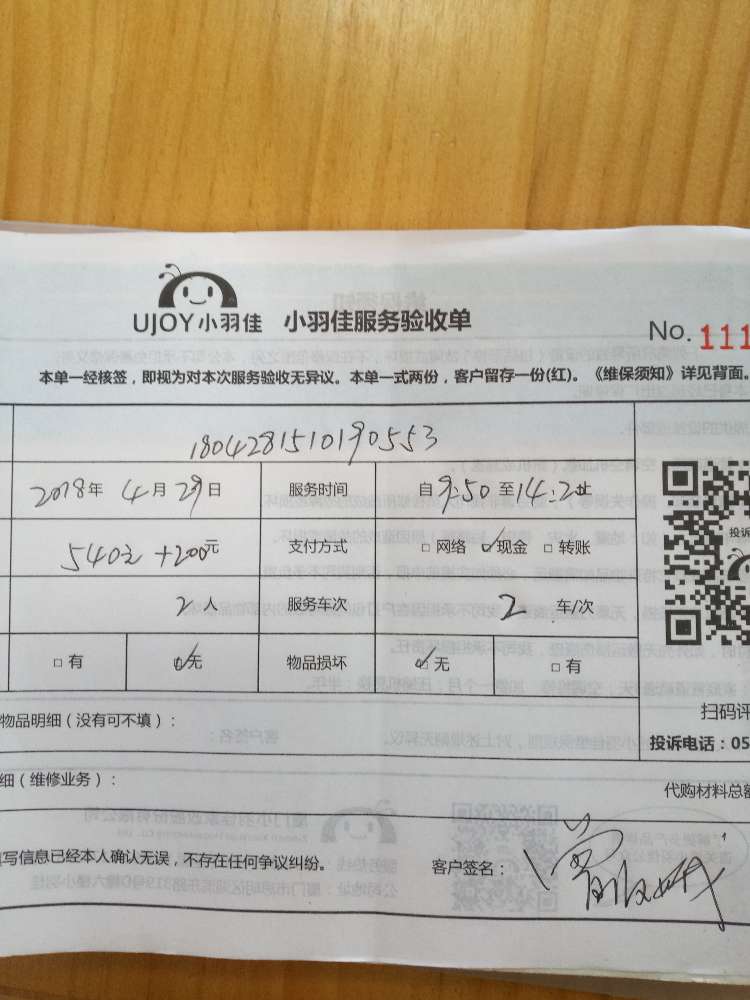 UJOY小羽佳 小羽佳服务验收单
No. 111
本单一经核签，即视为对本次服务验收无异议。本单一式两份，客户留存一份(红)。《维保须知》详见背面。
180428151019 0553
2018年 4月 29日 服务时间 自 9:50 至 14:2
540元 +200元 支付方式 □ 网络 □ 现金 □ 转账
2 人 服务车次 2 车/次
□ 有 □ 无 物品损坏 □ 无 □ 有
投诉
扫码评
物品明细（没有可不填）：
投诉电话：05
细（维修业务）：
代购材料总额
写信息已经本人确认无误，不存在任何争议纠纷。
客户签名：